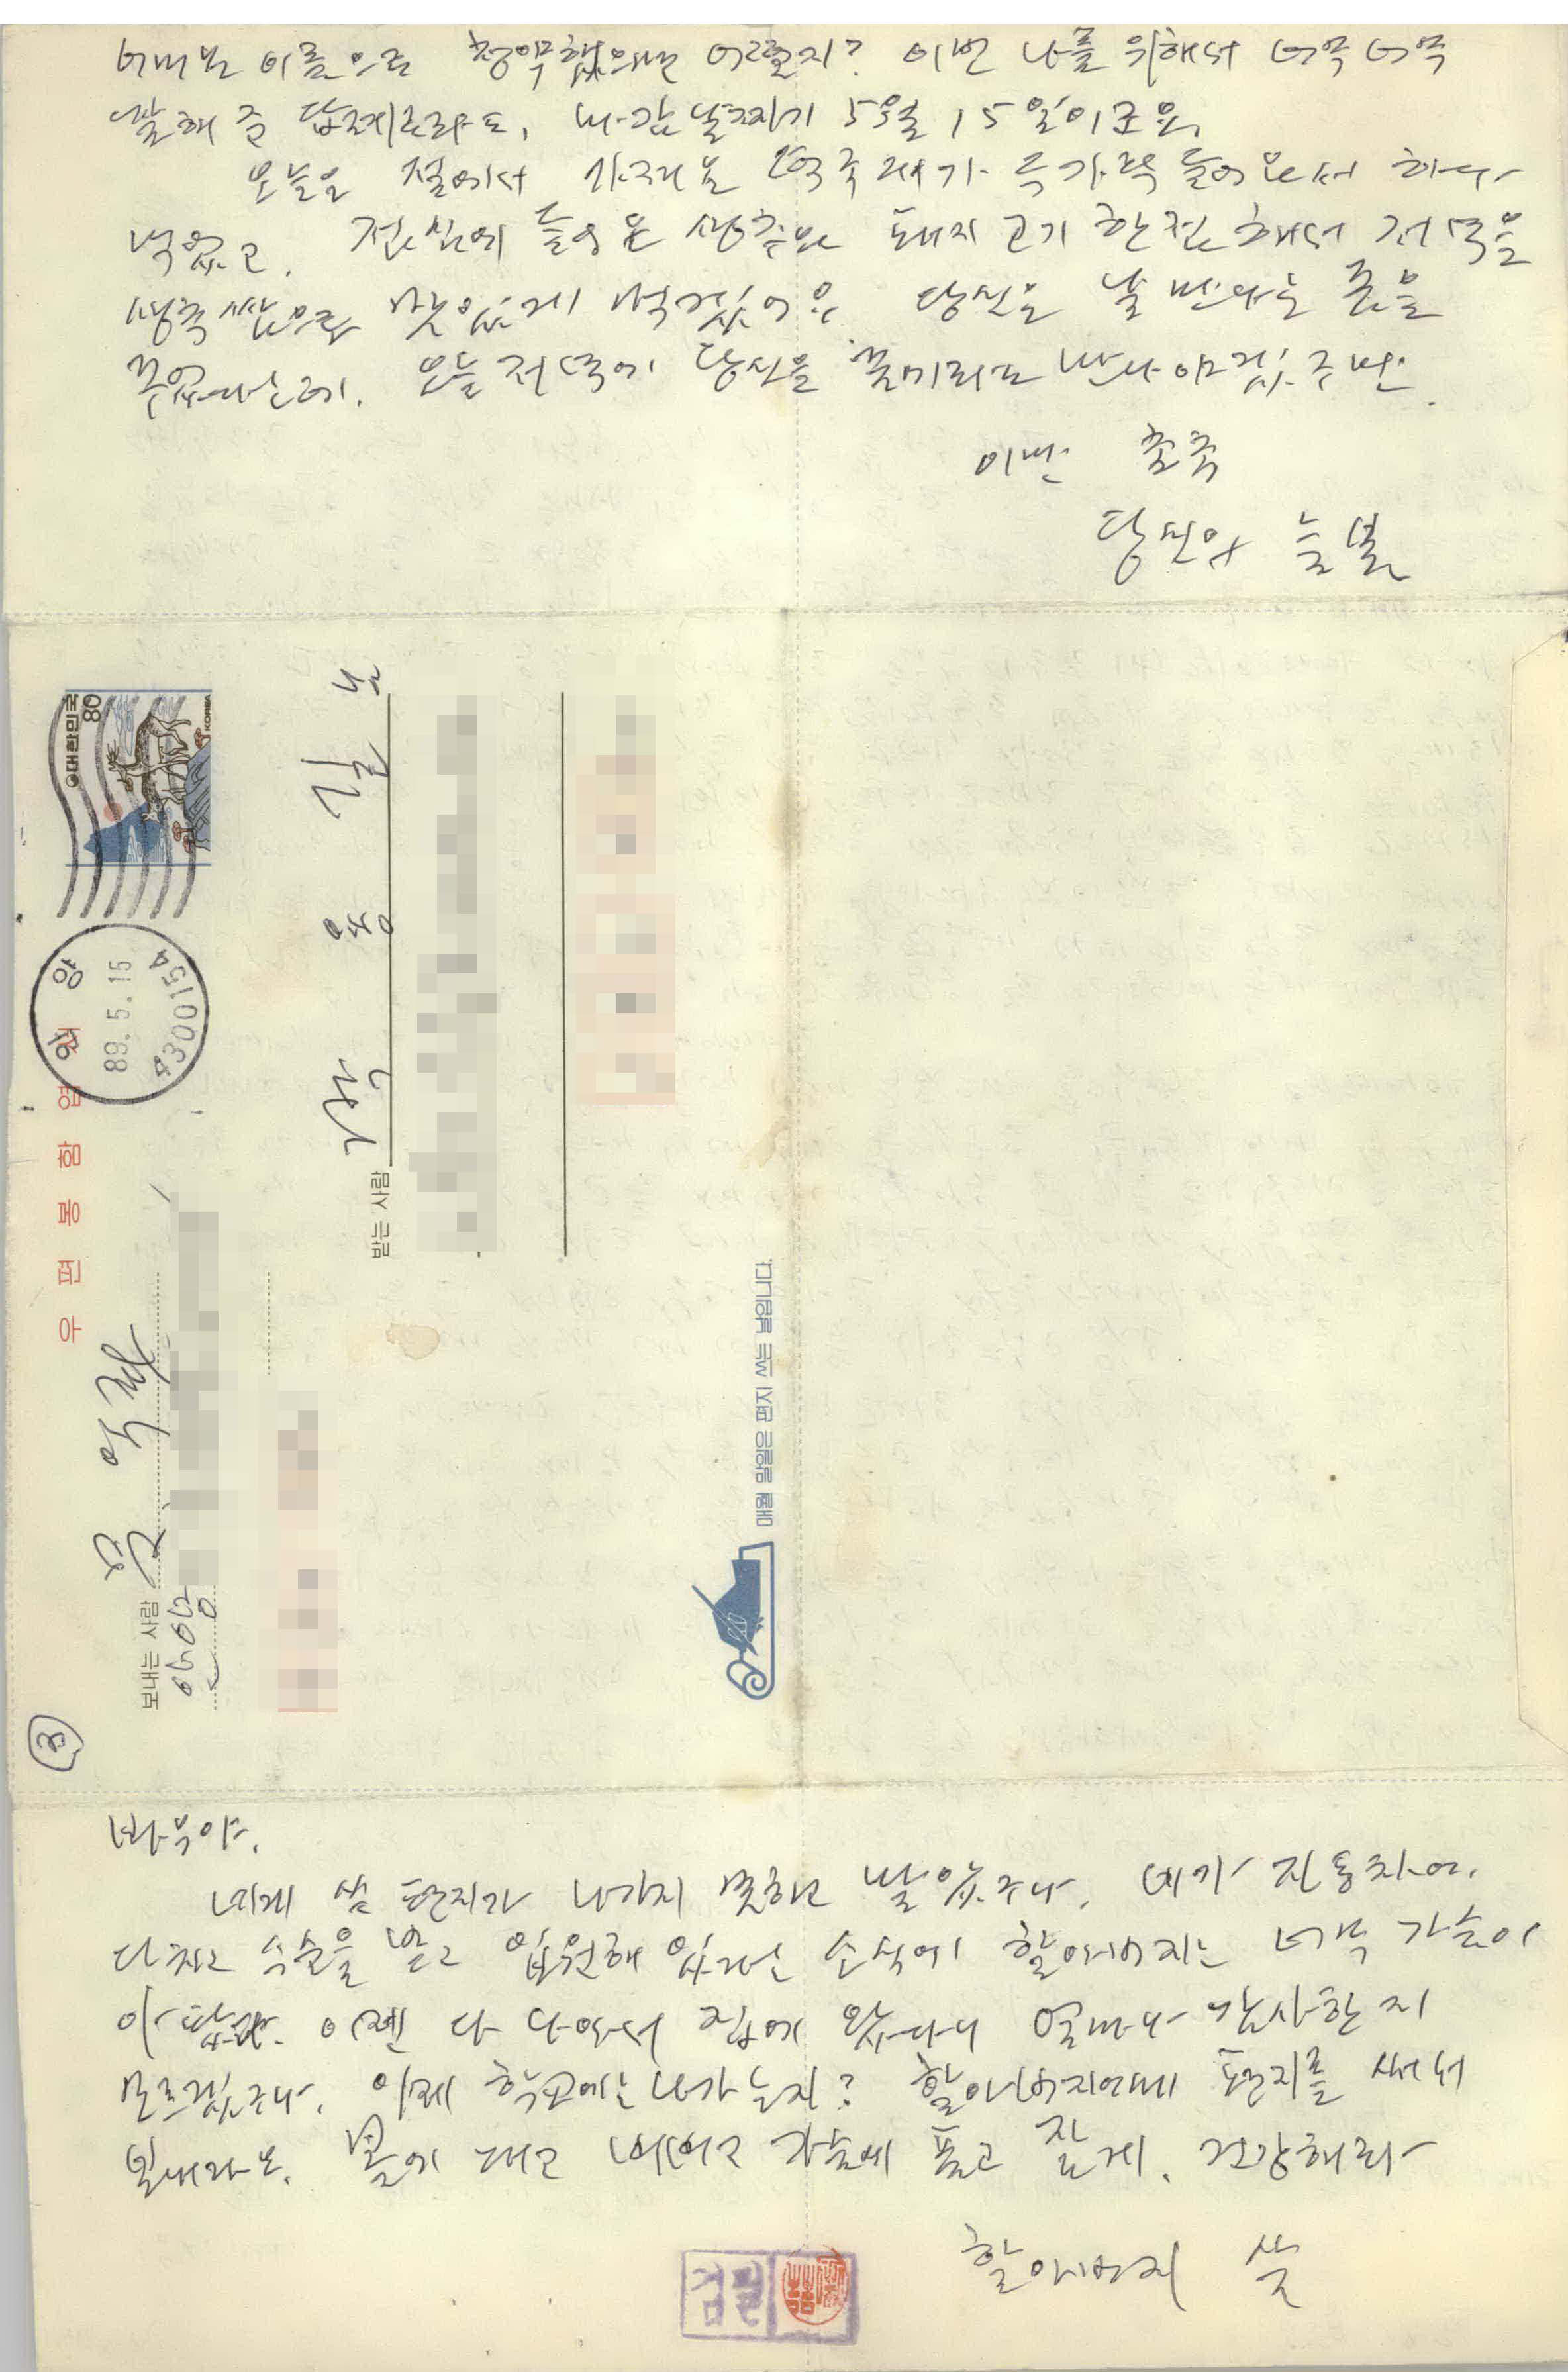 이름으로 어떨지? 이번 나를 위해서
말해 준 답례로라도, 내 날짜가 5월 15일이군요.
오늘은 절에서 가져온 들어와서 하나
먹었고, 점심에 들어온 상추와 돼지 고기 한점해서 저녁을
상추쌈으로 맛있게 먹겠어요. 당신은 날 만나는 꿈을
꾸었다는데, 오늘 저녁에 당신을 만나야겠구만.
이만 총총
당신의 늦봄
대한민국 KOREA
80
안양
89. 5. 15
4300154
우편봉함엽서
보내는 사람
문 익환
안양
받는 사람
박 용길
매월 말일은 편지 쓰는 날입니다.
3
바우야.
네게 쓴 편지가 나가지 못하고 말았구나. 네가 자동차에
다치고 수술을 받고 입원해 있다는 소식에 할아버지는 너무 가슴이
아팠다. 이젠 다 나아서 집에 왔다니 얼마나 감사한지
모르겠구나. 이제 학교에는 나가는지? 할아버지에게 편지를 써서
보내라모. 볼에 대고 가슴에 품고 잘게. 건강해라
할아버지 씀
검열